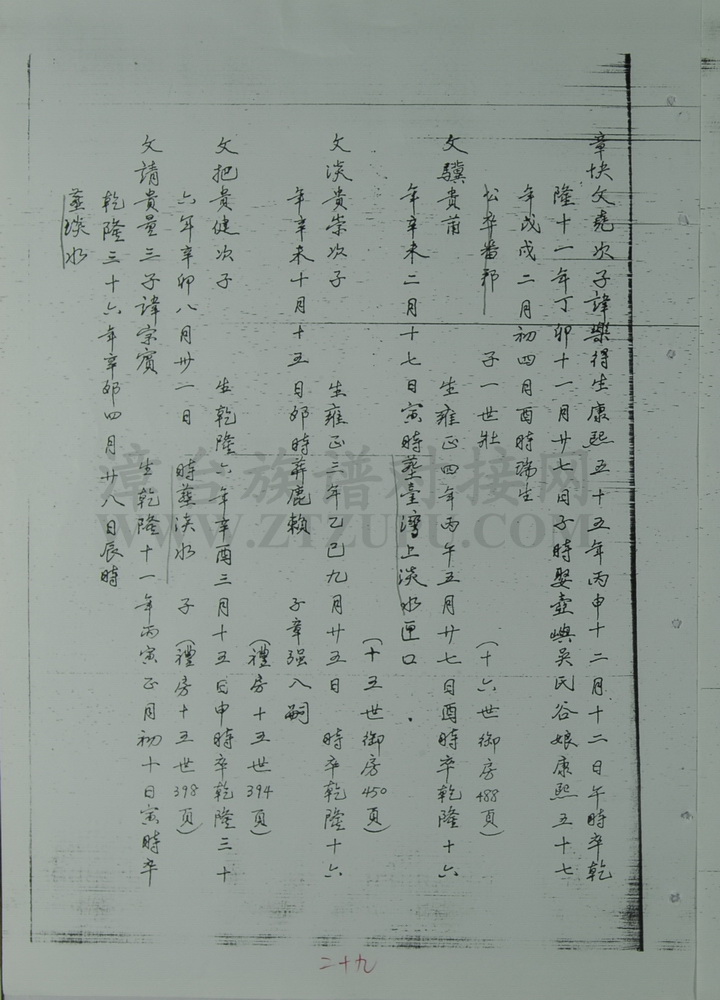 章快文堯次子諱樂得生康熙五十五年丙申十二月十二日午時卒乾
隆十一年丁卯十一月廿七日子時娶壺嶼吳氏谷娘康熙五十七
年戊戌二月初四月酉時瑞生
公卒番郡 子一世壯 (十六世御房488頁)
文驥貴甫 生雍正四年丙午五月廿七日酉時卒乾隆十六
年辛未二月十七日寅時塟臺灣上淡水匣口. (十五世御房450頁)
文淡貴崇次子 生雍正三年乙巳九月廿五日 時卒乾隆十六
年辛未十月十五日卯時葬鹿賴 子章强入嗣 (禮房十五世394頁)
文把貴健次子 生乾隆六年辛酉三月十五日申時卒乾隆三十
六年辛卯八月廿一日 時塟淡水 子 (禮房十五世398頁)
文請貴量三子諱宗賓 生乾隆十一年丙寅正月初十日寅時卒
乾隆三十六年辛卯四月廿八日辰時
塟淡水
二十九
漳台族谱对接网
WWW.ZTZUPU.COM